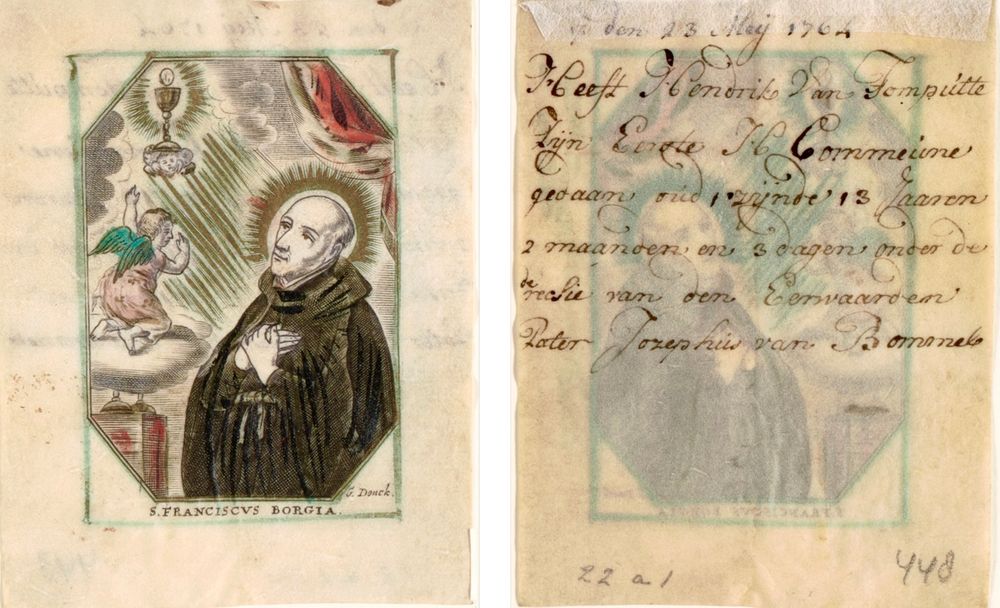 G. Donck.
S. FRANCISCVS BORGIA.
op den 23 Meij 1764
Heeft Hendrik Van Fomputte
Zijn Eerste H Commeune
gedaan oud zijnde 13 Jaaren
2 maanden en 3 dagen onder de
de recsie van den Eerwaarden
Pater Jozephus van Bommel
22 a 1
448